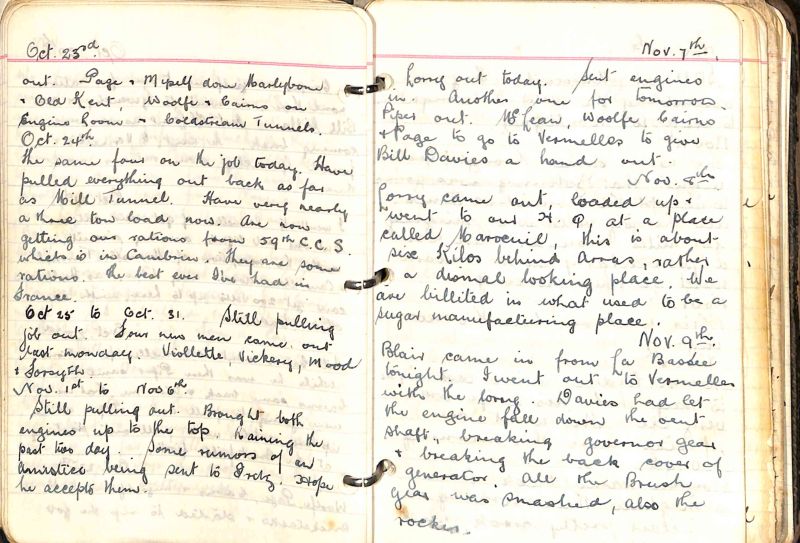 Oct. 23rd.
out. Page & Myself done Marlybone
& Old Kent. Woolfe & Cairns on
Engine Room & Coldstream Tunnels.
Oct. 24th.
The same four on the job today. Have
pulled everything out back as far
as Mill Tunnel. Have very nearly
a three ton load now. Are now
getting our rations from 59th C.C.S.
which is in Cambrin. They are some
rations. The best ever I've had in
France.
Oct 25 to Oct. 31. Still pulling
job out. Four new men came out
last monday. Viollette, Vickery, Mood
& Forsyth
Nov. 1st to Nov 6th
Still pulling out. Brought both
engines up to the top. Raining the
past two day. Some rumors of an
Amistice being sent to Fritz. Hope
he accepts them.
Nov. 7th.
Lorry out today. Sent engines
in. Another one for tomorrow.
Piper out. McLean, Woolfe, Cairns
& Page to go to Vermelles to give
Bill Davies a hand out.
Nov. 8th
Lorry came out, loaded up &
went to our H.Q. at a place
called Maroeuil, this is about
six Kilos behind Arras, rather
a dismal looking place. We
are billited in what used to be a
sugar manufacturing place.
Nov. 9th.
Blair came in from La Bassee
tonight. I went out to Vermelles
with the lorry. Davies had let
the engine fall down the vent
shaft, breaking governor gear
& breaking the back cover of
generator. All the Brush
gear was smashed, also the
rocker.